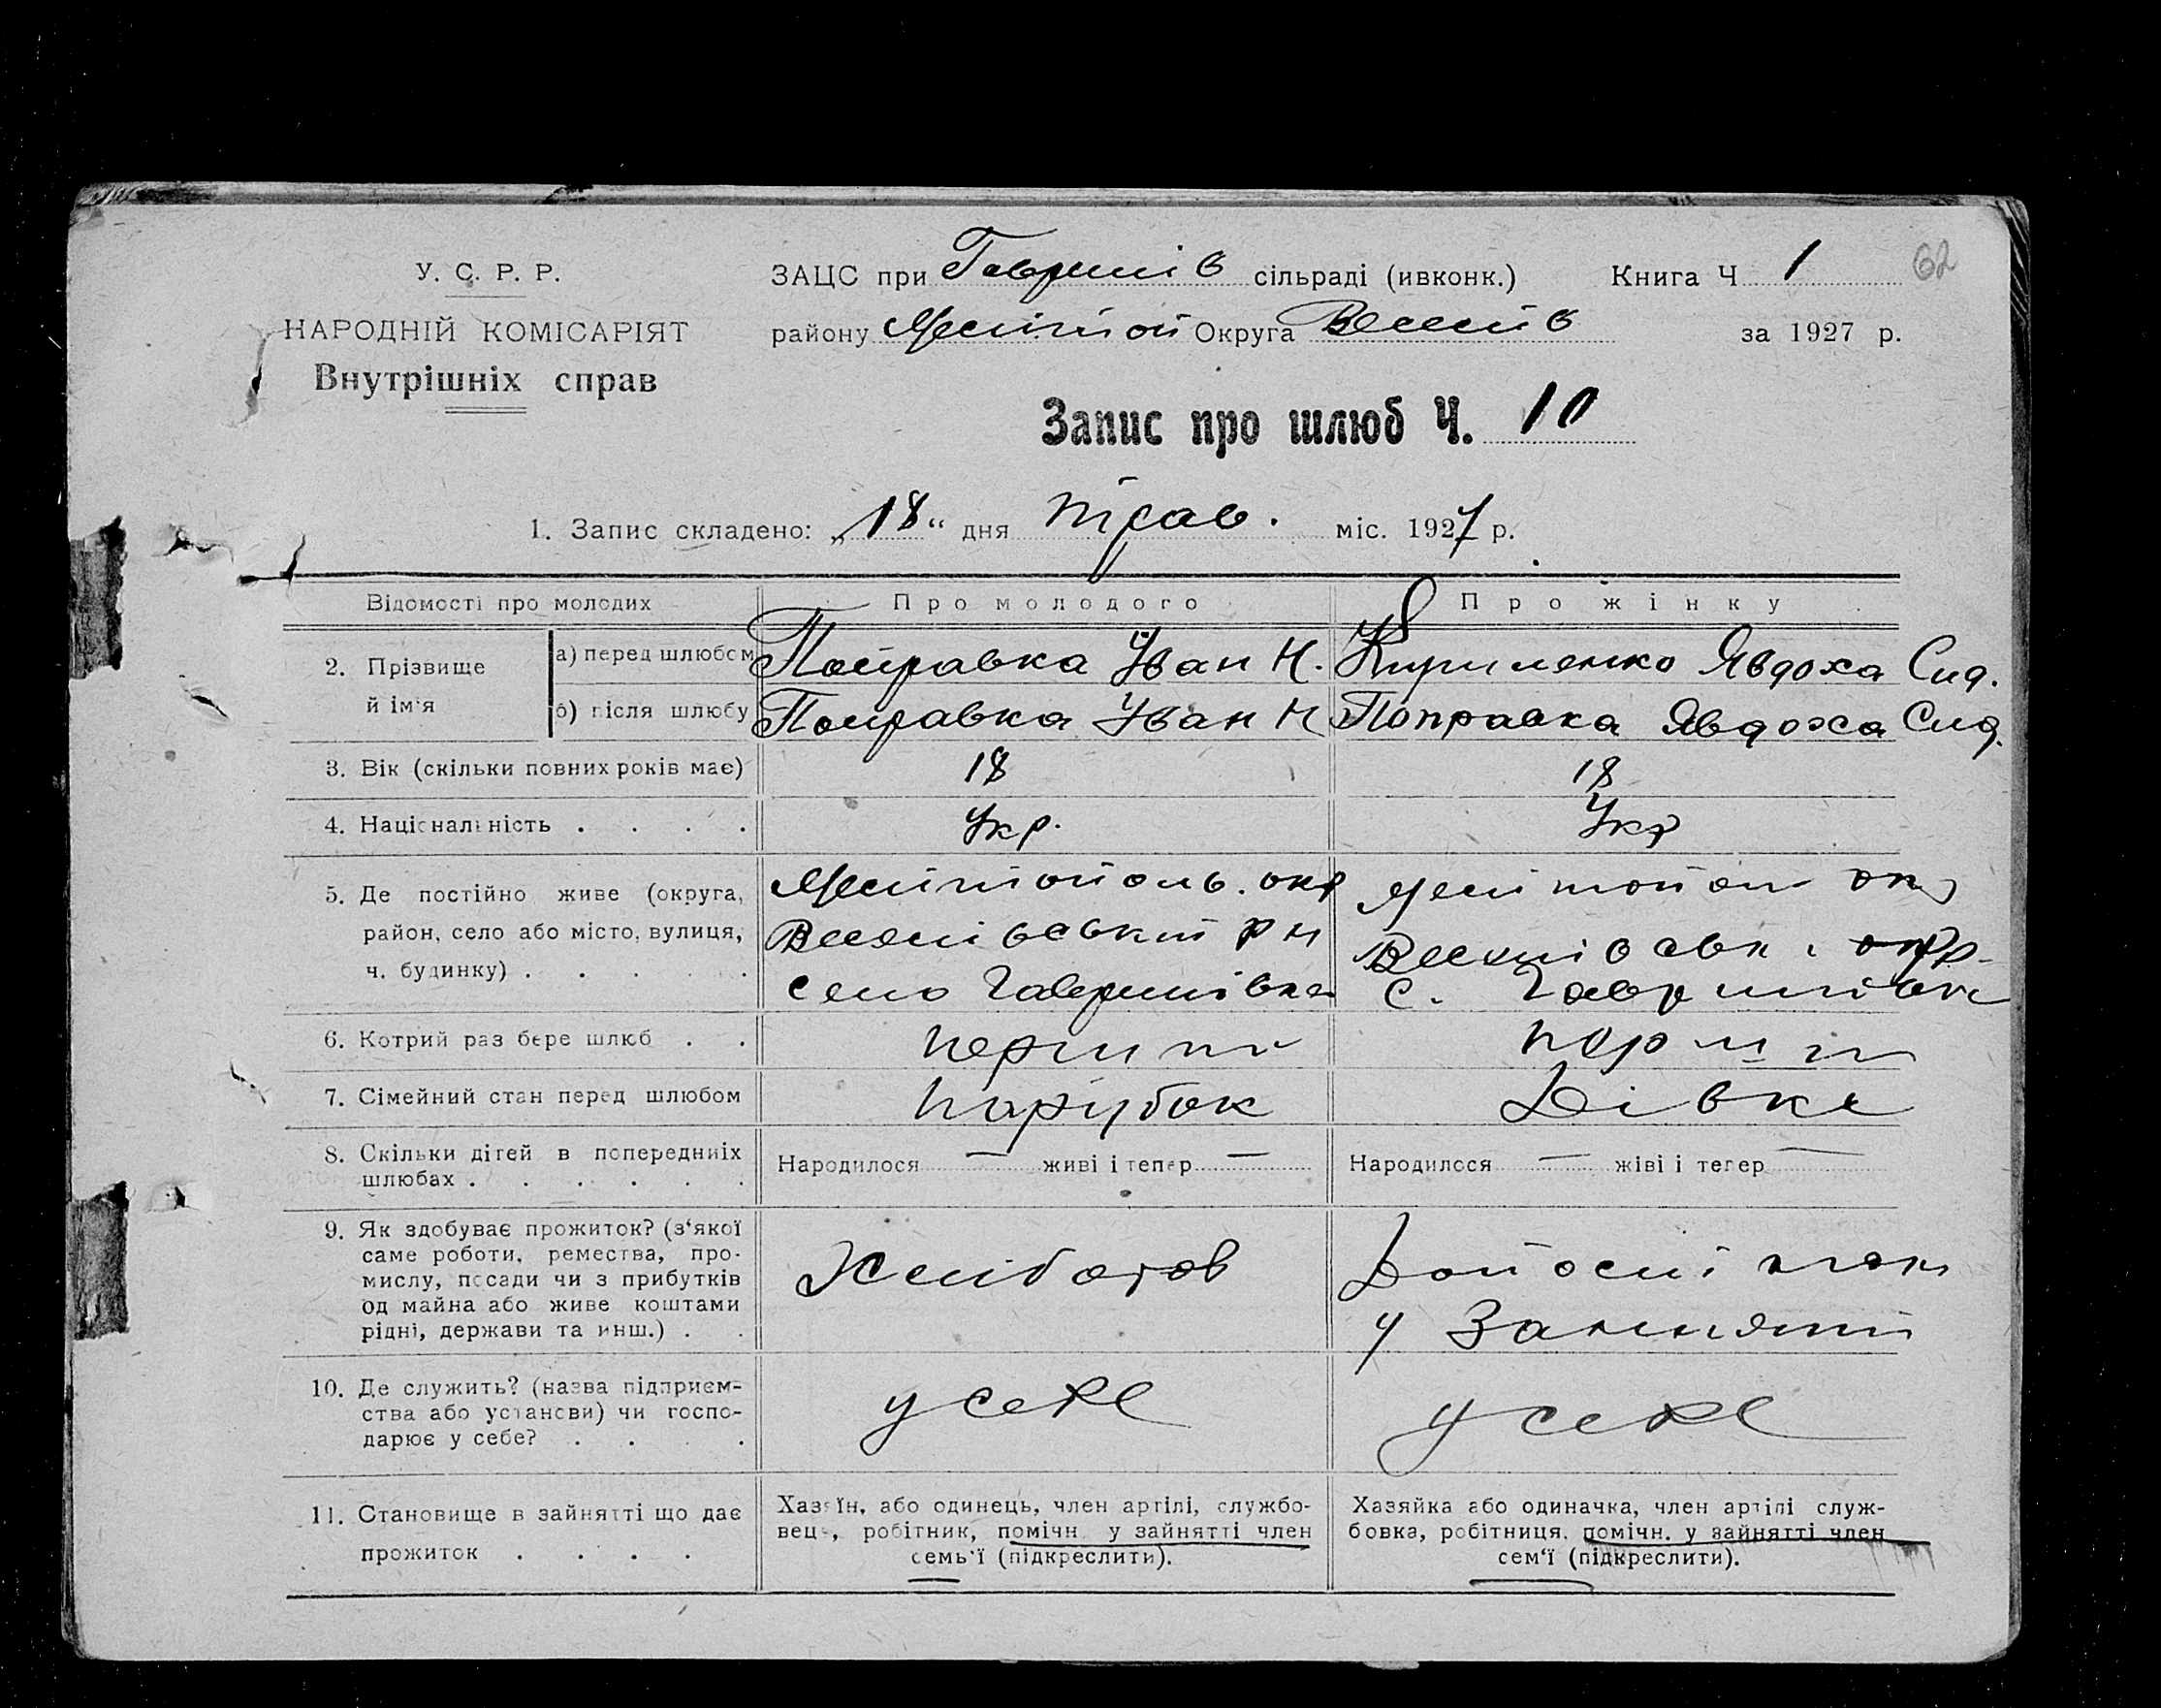 У. С. Р. Р.
НАРОДНІЙ КОМІСАРІЯТ
Внутрішніх справ
ЗАЦС при Гаврилів сільраді (ивконк.) Книга Ч 1 62
району Меліт оп Округа за 1927 р.
Запис про шлюб Ч. 10
1. Запис складено: „18“ дня трав. міс. 1927 р.
Відомості про молодих Про молодого Про жінку
2. Прізвище й ім‘я
а) перед шлюбом Поправка Іван Н. Кириленко Явдоха Сид.
б) після шлюбу Поправка Іван Н Поправка Явдоха Сид.
3. Вік (скільки повних років має) 18 18
4. Національність . . . . Укр. Укр
5. Де постійно живе (округа, район, село або місто, вулиця, ч. будинку) . . . .
Мелітополь. окр
рн
село Гаврилівка
Мелітопол окр
с. Гаврилівка
6. Котрий раз бере шлюб . . перший перший
7. Сімейний стан перед шлюбом парубок Дівка
8. Скільки дітей в попередниіх шлюбах . . . . . .
Народилося — живі і тепер —
Народилося — жіві і тепер —
9. Як здобуває прожиток? (з‘якої саме роботи, ремества, промислу, посади чи з прибутків од майна або живе коштами рідні, держави та инш.) . .
Хлібороб
у Занятті
10. Де служить? (назва підприємства або установи) чи господарює у себе? . . . .
у себе
у себе
11. Становище в зайнятті що дає прожиток . . . .
Хазяїн, або одинець, член артілі, службовець, робітник, помічн. у зайнятті член семь‘ї (підкреслити).
Хазяйка або одиначка, член артілі службовка, робітниця, помічн. у зайнятті член сем‘ї (підкреслити).